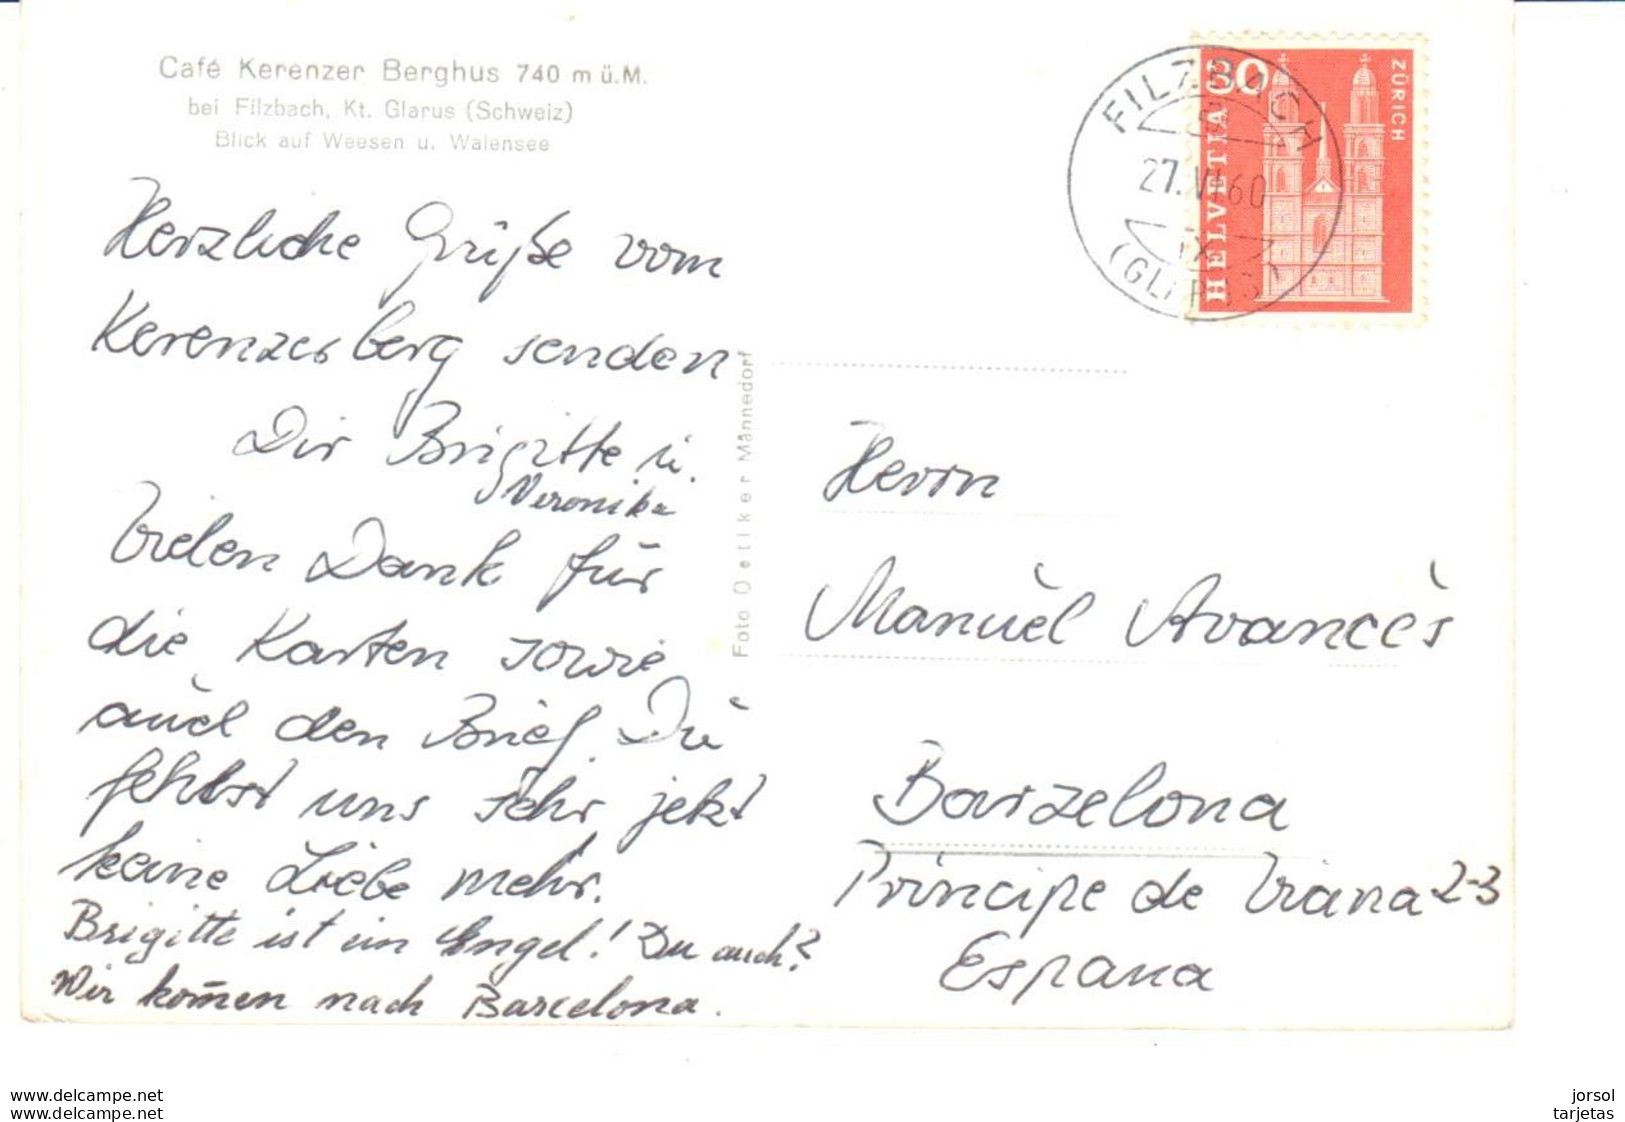 Café Kerenzer Berghus 740 m ü.M.
bei Filzbach, Kt. Glarus (Schweiz)
Blick auf Weesen u. Walensee
Herzliche Grüße vom
Kerenzerberg senden
Dir Brigitte u.
Veronika
Vielen Dank für
die Karten sowie
auch den Brief. Du
fehlst uns sehr jetzt
keine Liebe mehr.
Brigitte ist ein Engel! Du auch?
Wir kom̄en nach Barcelona.
Foto Oetiker Männedorf
FILZBACH
27.VI.60
IX
(GLARUS)
30
HELVETIA
ZÜRICH
Herrn
Manuel Avancés
Barzelona
Principe de Viana 2-3
Espana
delcampe.net
delcampe.net
jorsol
tarjetas